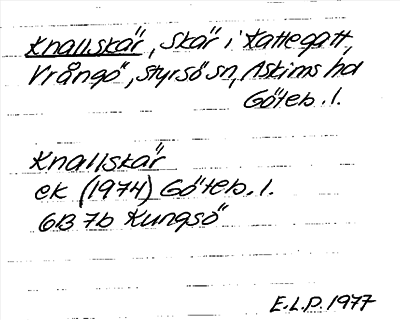 Knallskär, Skär i Kattegatt,
Vrångö, Styrsö sn, Askims hd
Göteb. l.
Knallskär
ek (1974) Göteb. l.
6B 7b Kungsö
E.L.P. 1977